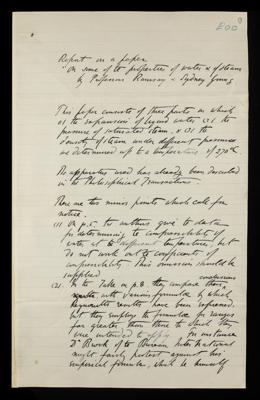 E00
Report on a paper
"On some of the properties of water & of steam
by Professors Ramsay & Sydney Young
This paper consists of three parts in which
(1) the expansion of liquid water (2) the
pressure of saturated steam, & (3) the
density of steam under different pressures
are determined up to a temperature of 270°C
The apparatus used has already been described
in the Philosophical Transactions.
There are two minor points which call for
notice.
(1) On p. 5. the authors give the data
for determining the compressibility of
water at different temperatures, but
do not work out the coefficients of
compressibility. This omission should be
supplied
(2). In the Table on p. 8. they compare their
with various formulae by which
Regnault's results have been expressed,
but they employ the formulae for ranges
far greater than those to which they
were intended to apply. for instance
Dr Broch of the Bureau International
might fairly protest against his
empirical formula, which he himself